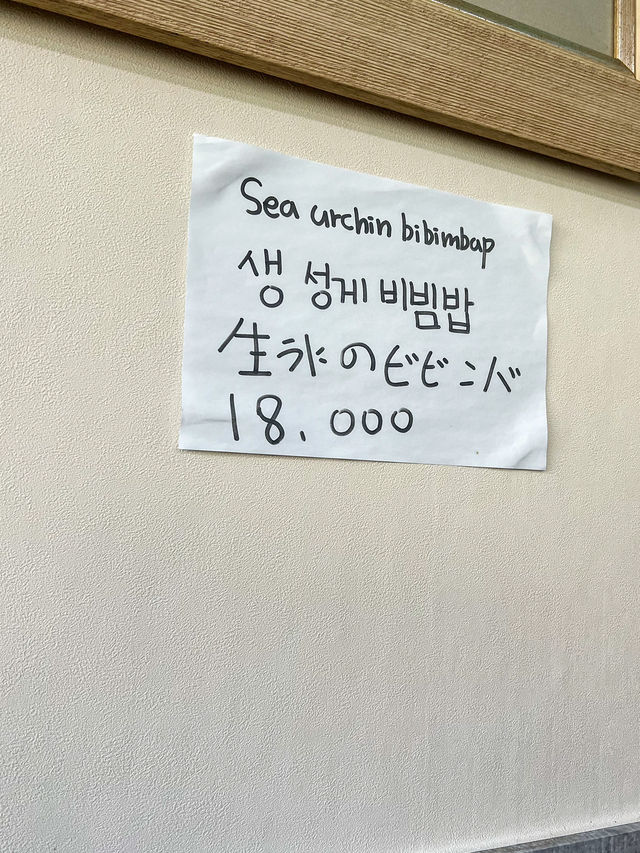 Sea urchin bibimbap
생 성게 비빔밥
生うにのビビンバ
18.000